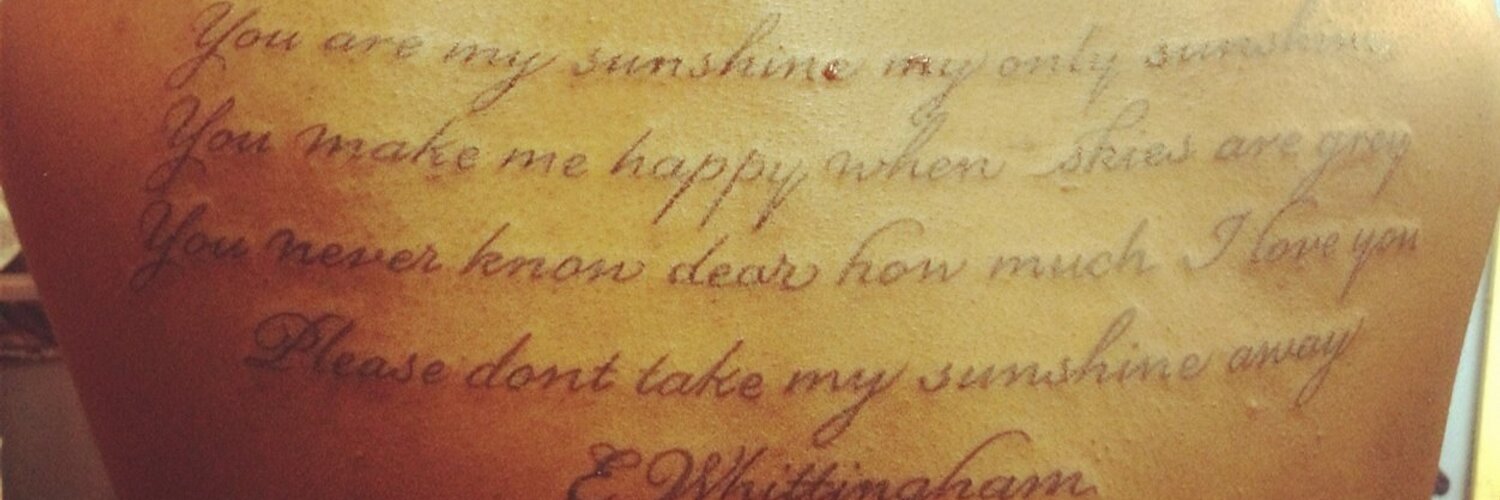 You are my sunshine my only sunshine,
You make me happy when skies are grey
You never know dear how much I love you
Please dont take my sunshine away
E Whittingham